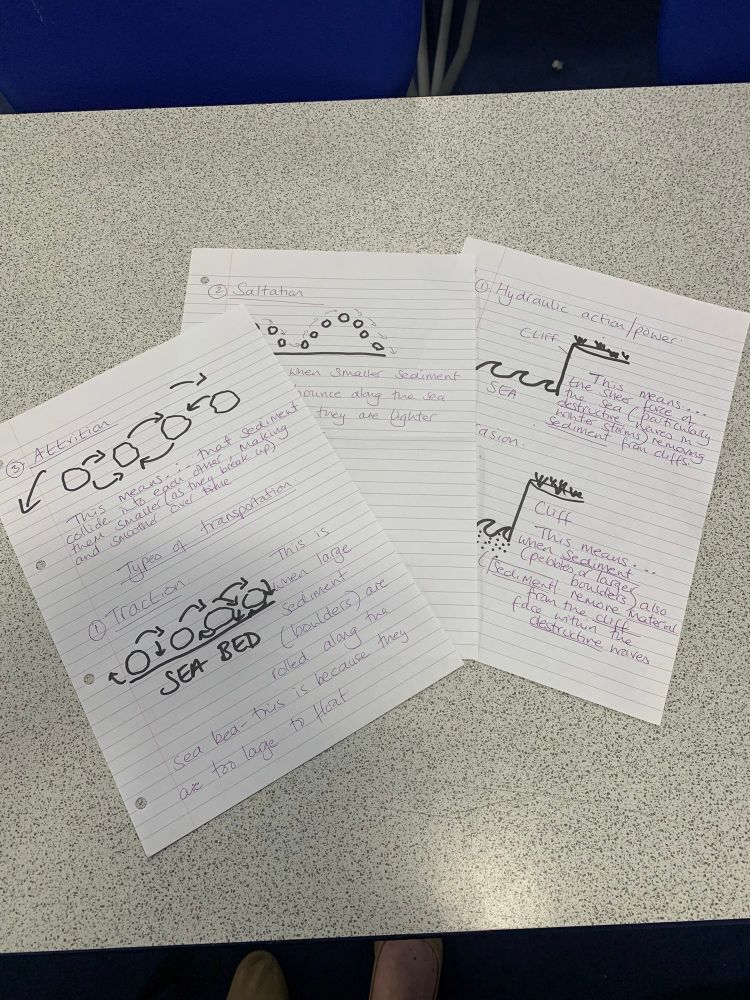 ③ Attrition
This means.... that sediment
collide into each other, making
them smaller (as they break up)
and smoother over time
Types of transportation:
① Traction:
This is
when large
sediment
(boulders) are
rolled along the
SEA BED
sea bed- this is because they
are too large to float
② Saltation
when smaller sediment
bounce along the sea
they are lighter
① Hydraulic action/power:
CLIFF
SEA
This means....
the sheer force of
the sea (particularly
destructive waves in
winter storms) removing
sediment from cliffs.
asion:
Cliff
This means....
when sediment
(pebbles or larger
boulders) also
(sediment) remove material
from the cliff
face within the
destructive waves